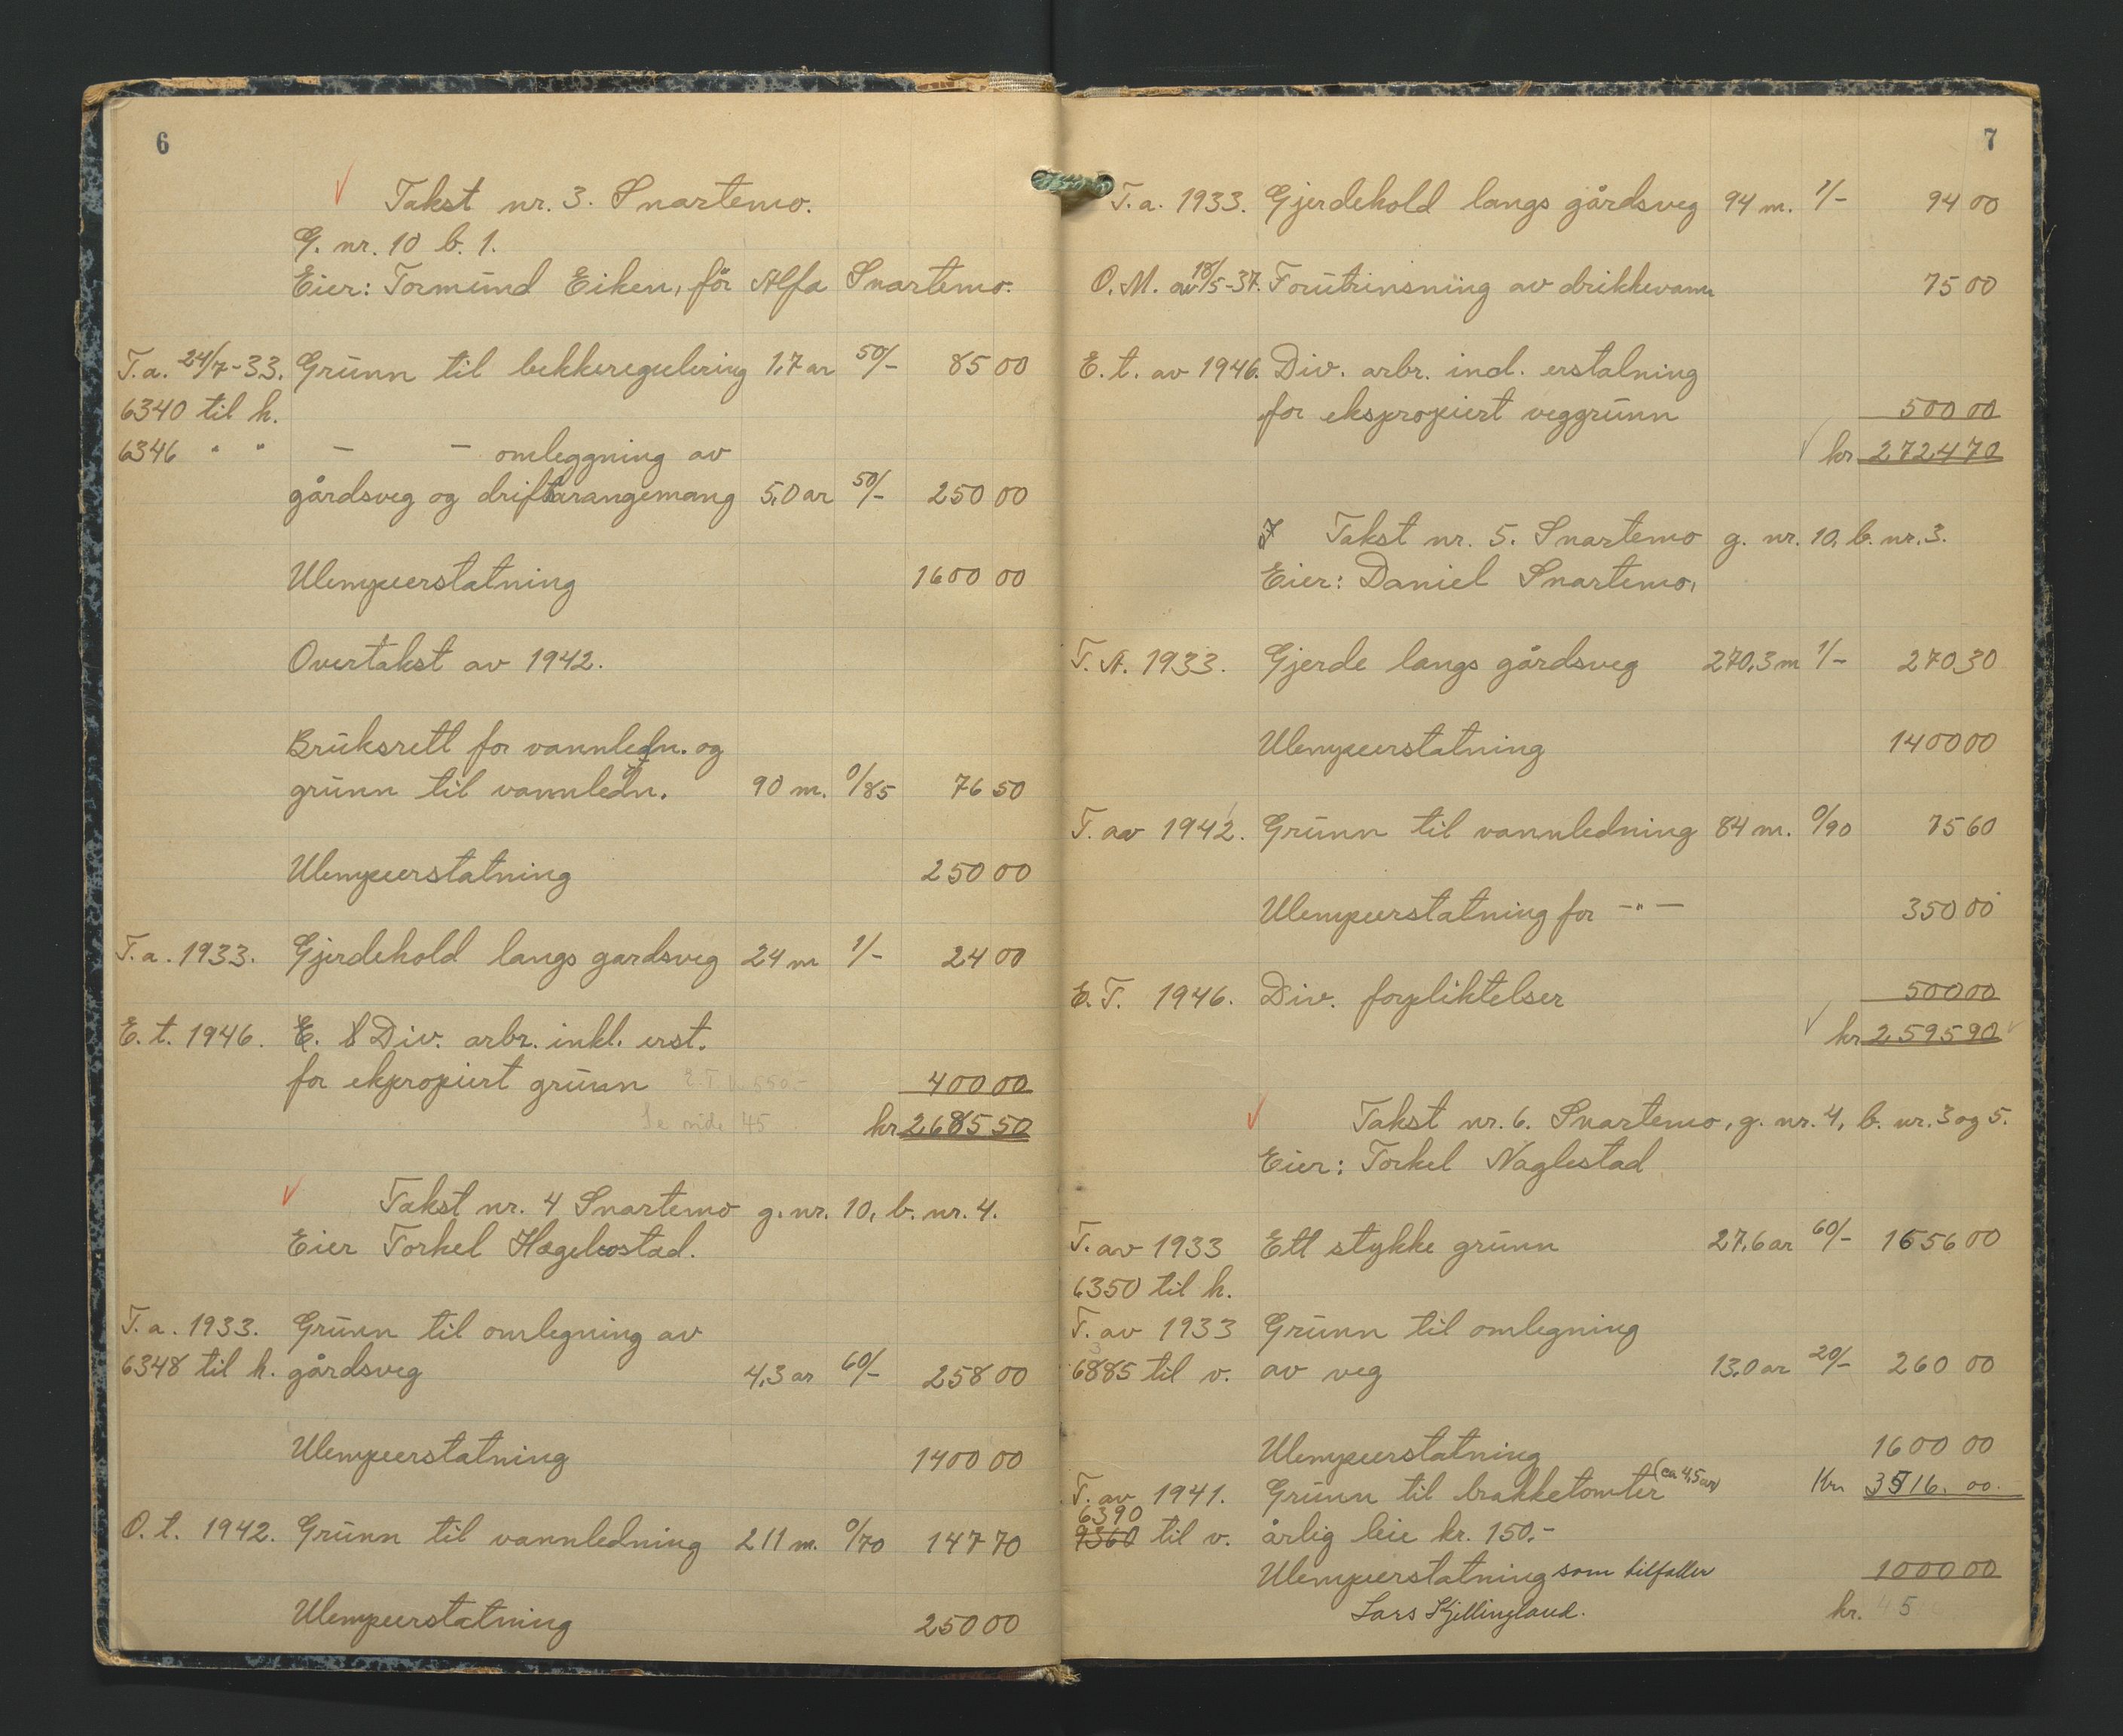 6
Takst nr. 3. Snartemo.
G. nr. 10 b. 1.
Eier: Tormund Eiken, før Alfa Snartemo.
T.a. 24/7-33. Grunn til bekkeregulering 1,7 ar 50/- 85 00
6340 til h.
6346 " " — — omleggning av
gårdsveg og driftarangemang 5,0 ar 50/- 250 00
Ulempeerstatning 1600 00
Overtakst av 1942.
Bruksrett for vannledn. og
grunn til vannledn. 90 m. 0/85 76 50
Ulempeerstatning 250 00
T.a. 1933. Gjerdehold langs gardsveg 24 m 1/- 24 00
E. t. 1946. Div. arbr. inkl. erst.
for ekpropiert grunn E.T. 550.- 400 00
Se side 45 kr 2685 50
Takst nr. 4 Snartemo g. nr. 10, b. nr. 4.
Eier Torkel Hægebostad.
T.a. 1933. Grunn til omlegning av
6348 til h. gårdsveg 4,3 ar 60/- 258 00
Ulempeerstatning 1400 00
O. t. 1942. Grunn til vannledning 211 m. 0/70 147 70
Ulempeerstatning 250 00
7
T.a. 1933. Gjerdehold langs gårdsveg 94 m. 1/- 94 00
O.M. av 18/5-37. Forutrinsning av drikkevann 75 00
E. t. av 1946. Div. arbr. incl. erstalning
for ekspropiert veggrunn 500 00
kr 2724 70
Takst nr. 5. Snartemo g. nr. 10, b. nr. 3.
Eier: Daniel Snartemo,
T. A. 1933. Gjerde langs gårdsveg 270,3 m 1/- 270 30
Ulempeerstatning 1400 00
T. av 1942. Grunn til vannledning 84 m. 0/90 75 60
Ulempeerstatning for -"- 350 00
E. T. 1946. Div. forpliktelser 500 00
kr 2595 90
Takst nr. 6. Snartemo, g. nr. 4, b. nr. 3 og 5.
Eier: Torkel Naglestad
T. av 1933 Ett stykke grunn 27,6 ar 60/- 1656 00
6350 til h.
T. av 1933 Grunn til omlegning
6385 til v. av veg 13,0 ar 20/- 260 00
Ulempeerstatning 1600 00
T. av 1941. Grunn til brakketomter (ca 4,5 ar) Kr. 3516. 00.
6390
9360 til v. årlig leie kr. 150,-
Ulempeerstatning som tilfaller 1000 00
Lars Kjellingland. kr. 45